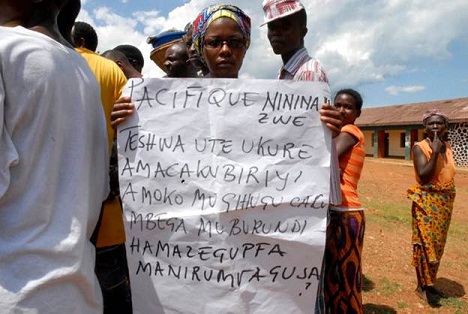 PACIFIQUE NININA
ZWE
TESHWA UTE UKURE
AMACAKUBIRIY'
AMOKO MUGIHUGU CACU
MBEGA MUBURUNDI
HAMAZEGUPFA
MANIRUMVAGUSA
?